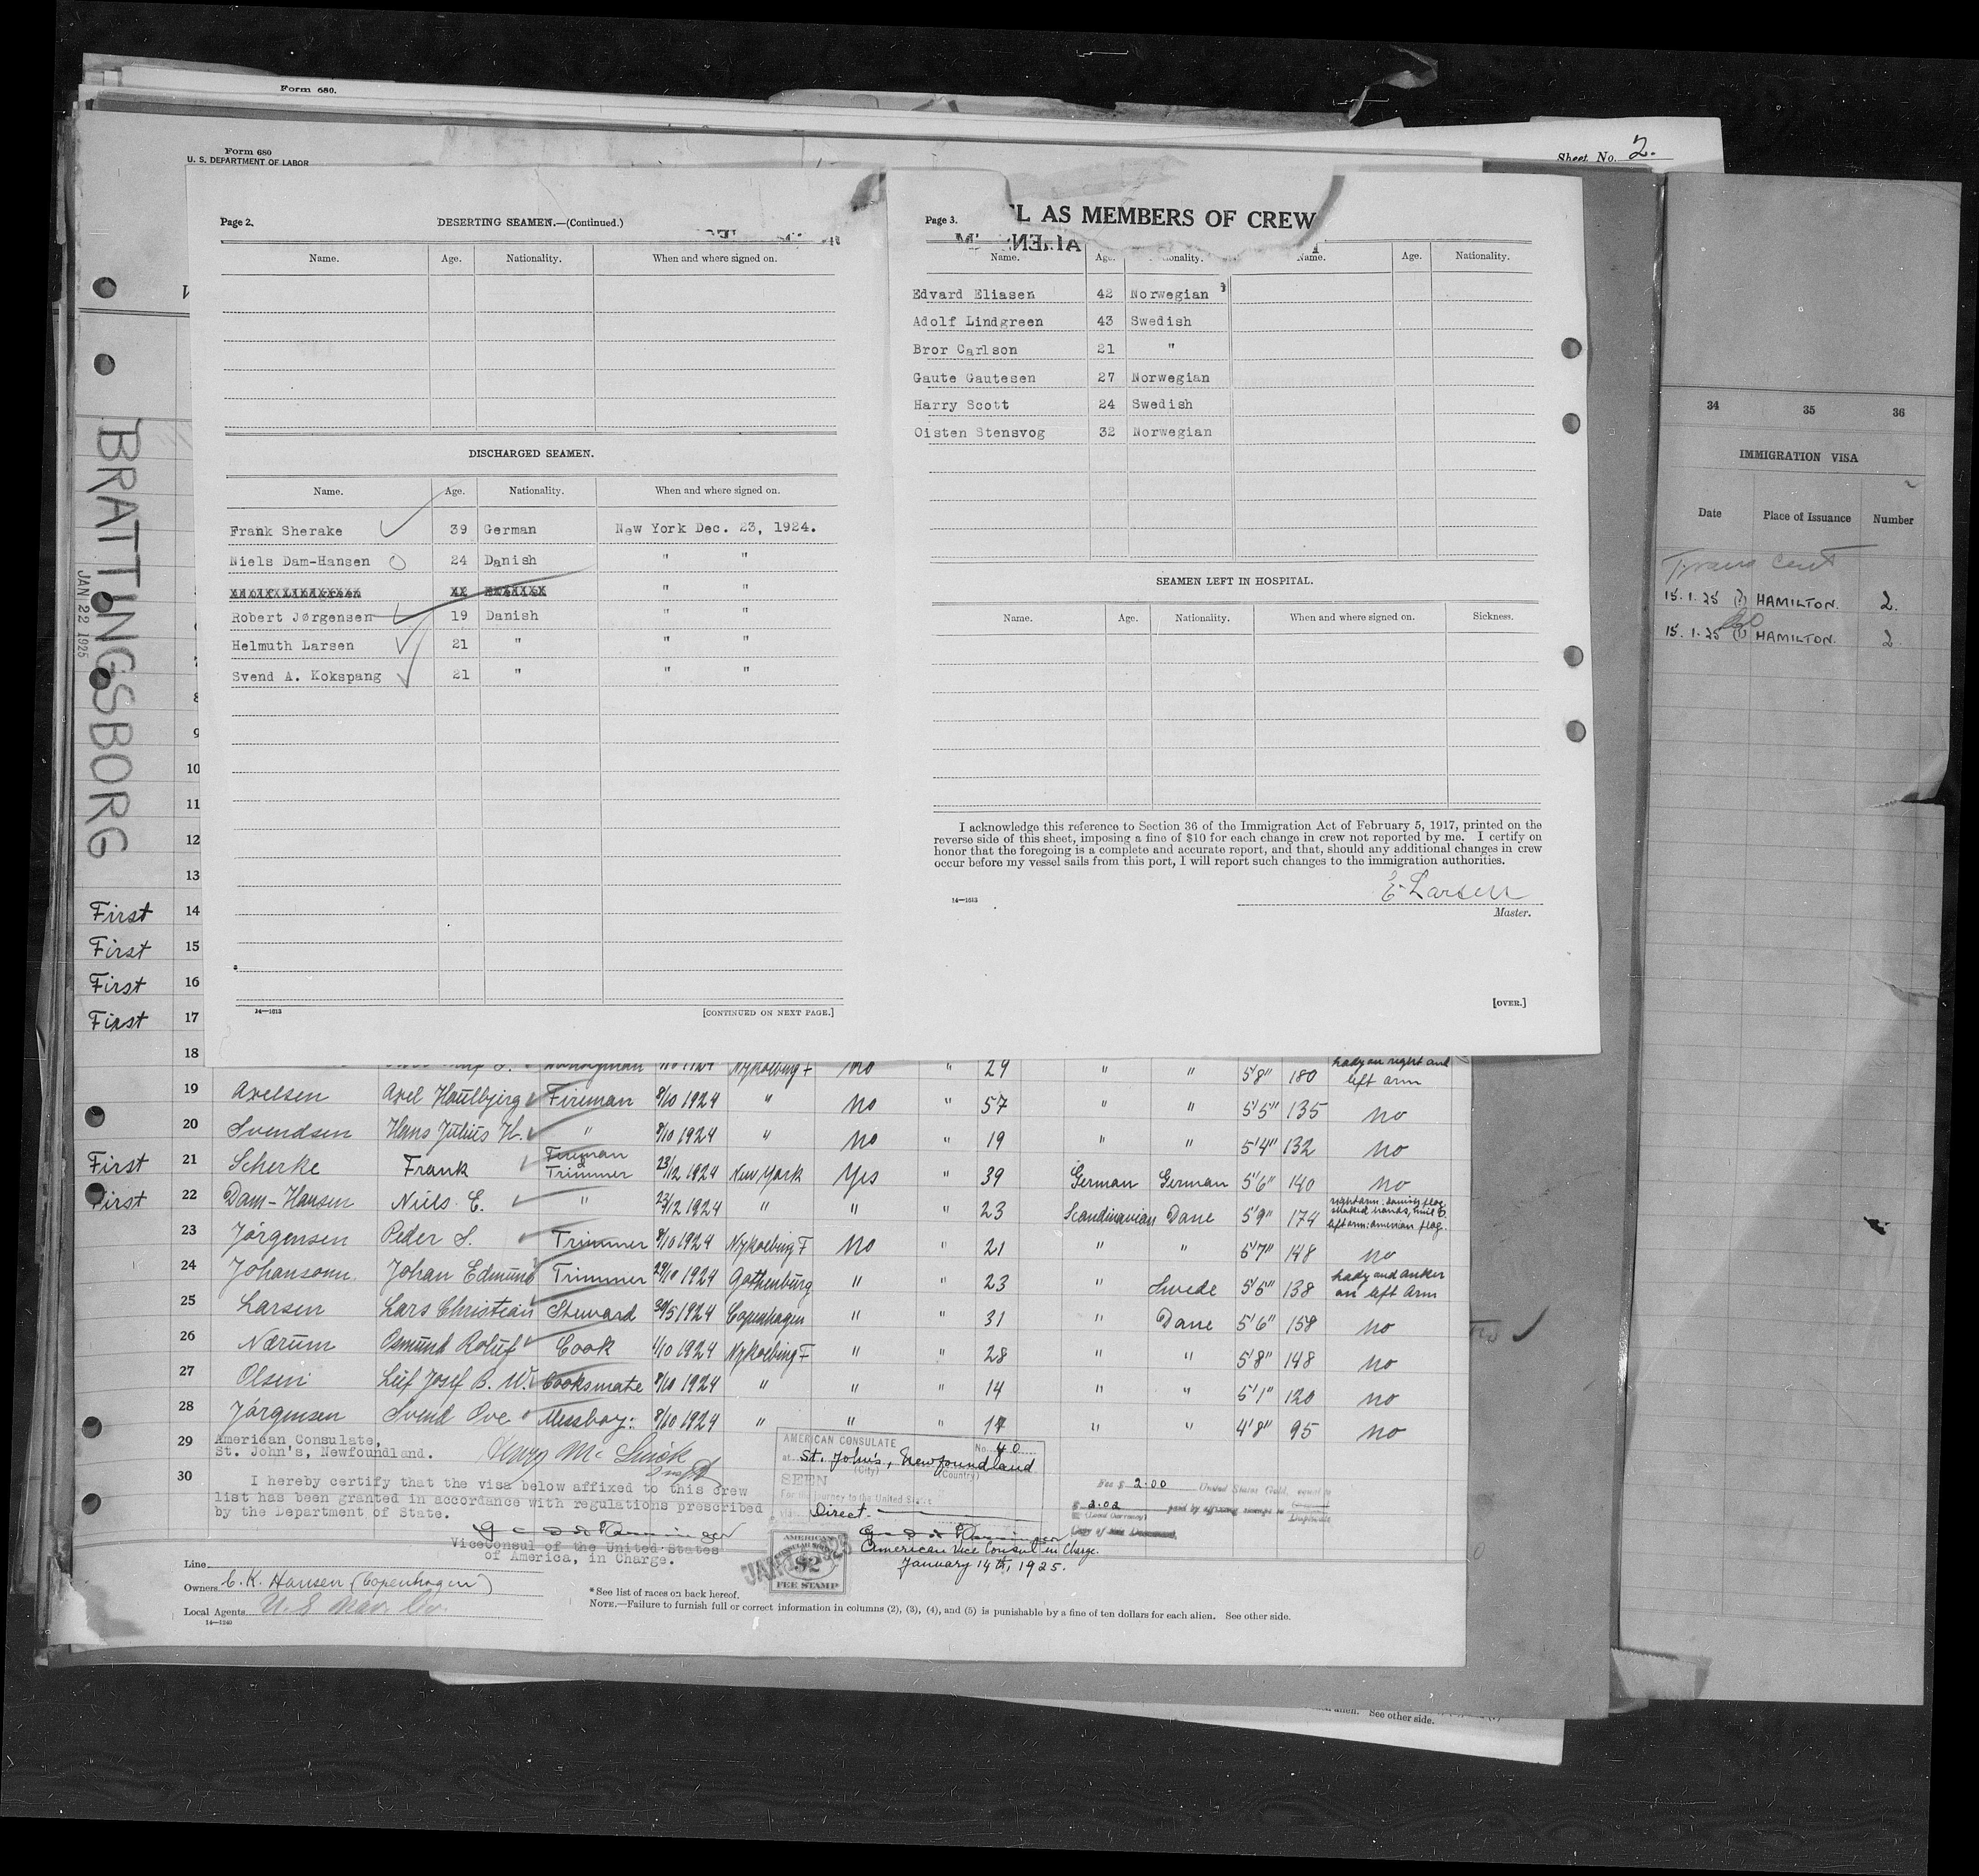 Form 680.
Form 680
U. S. DEPARTMENT OF LABOR
Sheet No. 2.
BRATTINGSBORG
JAN 22 1925
Page 2.
DESERTING SEAMEN.—(Continued.)
Name. Age. Nationality. When and where signed on.
DISCHARGED SEAMEN.
Name. Age. Nationality. When and where signed on.
Frank Sherake 39 German New York Dec. 23, 1924.
Niels Dam-Hansen 24 Danish " "
" "
Robert Jørgensen 19 Danish " "
Helmuth Larsen 21 " " "
Svend A. Kokspang 21 " " "
14—1613
[CONTINUED ON NEXT PAGE.]
Page 3.
L AS MEMBERS OF CREW
ALIEN
Name. Age. Nationality. Name. Age. Nationality.
Edvard Eliasen 42 Norwegian
Adolf Lindgreen 43 Swedish
Bror Carlson 21 "
Gaute Gautesen 27 Norwegian
Harry Scott 24 Swedish
Oisten Stensvog 32 Norwegian
SEAMEN LEFT IN HOSPITAL.
Name. Age. Nationality. When and where signed on. Sickness.
I acknowledge this reference to Section 36 of the Immigration Act of February 5, 1917, printed on the
reverse side of this sheet, imposing a fine of $10 for each change in crew not reported by me. I certify on
honor that the foregoing is a complete and accurate report, and that, should any additional changes in crew
occur before my vessel sails from this port, I will report such changes to the immigration authorities.
E Larsen
Master.
14—1613
[OVER.]
34 35 36
IMMIGRATION VISA
Date Place of Issuance Number
Trans Cert
15.1.25 HAMILTON. 2.
15.1.25 HAMILTON. 2
8
9
10
11
12
13
First 14
First 15
First 16
First 17
18 1924 Nykoebing F no " 29 " " 5'8" 180 Lady on right and left arm
19 Axelsen Axel Houlbjerg Fireman 8/10 1924 " no " 57 " " 5'5" 135 no
20 Svendsen Hans Julius H. " 8/10 1924 " no " 19 " " 5'4" 132 no
First 21 Scherke Frank Fireman & Trimmer 23/12 1924 New York Yes " 39 German German 5'6" 140 no
First 22 Dam-Hansen Niels E. " 23/12 1924 " " " 23 Scandinavian Dane 5'9" 174 right arm: danish flag, shaked hands, left arm: american flag.
23 Jörgensen Peder S. Trimmer 8/10 1924 Nykoebing F no " 21 " " 5'7" 148 no
24 Johansonn Johan Edmund Trimmer 29/10 1924 Gothenburg " " 23 " Swede 5'5" 138 Lady and anker on left arm
25 Larsen Lars Christian Steward 30/5 1924 Copenhagen " " 31 " Dane 5'6" 158 no
26 Nærum Osmund Roluf Cook 1/10 1924 Nykoebing F " " 28 " " 5'8" 148 no
27 Olsen Leif Josef B. W. Cooksmate 8/10 1924 " " " 14 " " 5'1" 120 no
28 Jörgensen Svend Ove Messboy: 8/10 1924 " " " 17 " " 4'8" 95 no
29 American Consulate,
St. John's, Newfoundland.
30 I hereby certify that the visa below affixed to this crew
list has been granted in accordance with regulations prescribed
by the Department of State.
Vice Consul of the United States
of America, in Charge.
AMERICAN CONSULATE
No. 40
at St. John's, Newfoundland
(City) (Country)
SEEN
For the journey to the United States
via Direct.
American Vice Consul in Charge.
January 14th, 1925.
Fee $ 2.00 United States Gold,
$ 2.02 paid by affixing stamps to
(Local Currency) Duplicate
AMERICAN
$2
FEE STAMP
Line
Owners C. K. Hansen (Copenhagen)
Local Agents U S Nav. Co.
14—1240
*See list of races on back hereof.
NOTE.—Failure to furnish full or correct information in columns (2), (3), (4), and (5) is punishable by a fine of ten dollars for each alien. See other side.
alien. See other side.